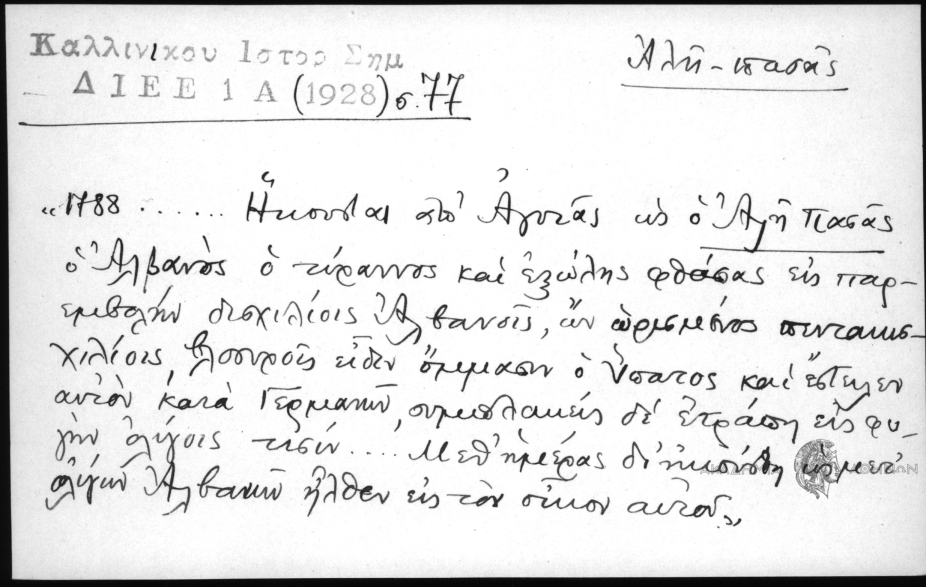 Καλλινικου Ιστορ Σημ
ΔΙΕΕ 1 Α (1928) σ. 77
Ἀλῆ-πασᾶς
"1788 ...... Ἤκουσται ἀπ' Ἀγυιᾶς ὡς ὁ Ἀλῆ Πασᾶς
ὁ Ἀλβανὸς ὁ τύραννος καὶ ἐξώλης φθάσας εἰς παρ-
εμβολὴν δισχιλίοις Ἀλβανοῖς, ὢν ὡρισμένος πεντακισ-
χιλίοις, βλοσυροῖς εἶδεν ὄμμασιν ὁ Ὕπατος καὶ ἔστειλεν
αὐτὸν κατὰ Γερμανῶν, συμπλακεὶς δὲ ἐτράπη εἰς φυ-
γὴν ὀλίγοις τισίν.... Μεθ' ἡμέρας δὲ ἠκούσθη ὡς μετ'
ὀλίγων Ἀλβανῶν ἦλθεν εἰς τὸν οἶκον αὐτοῦ"